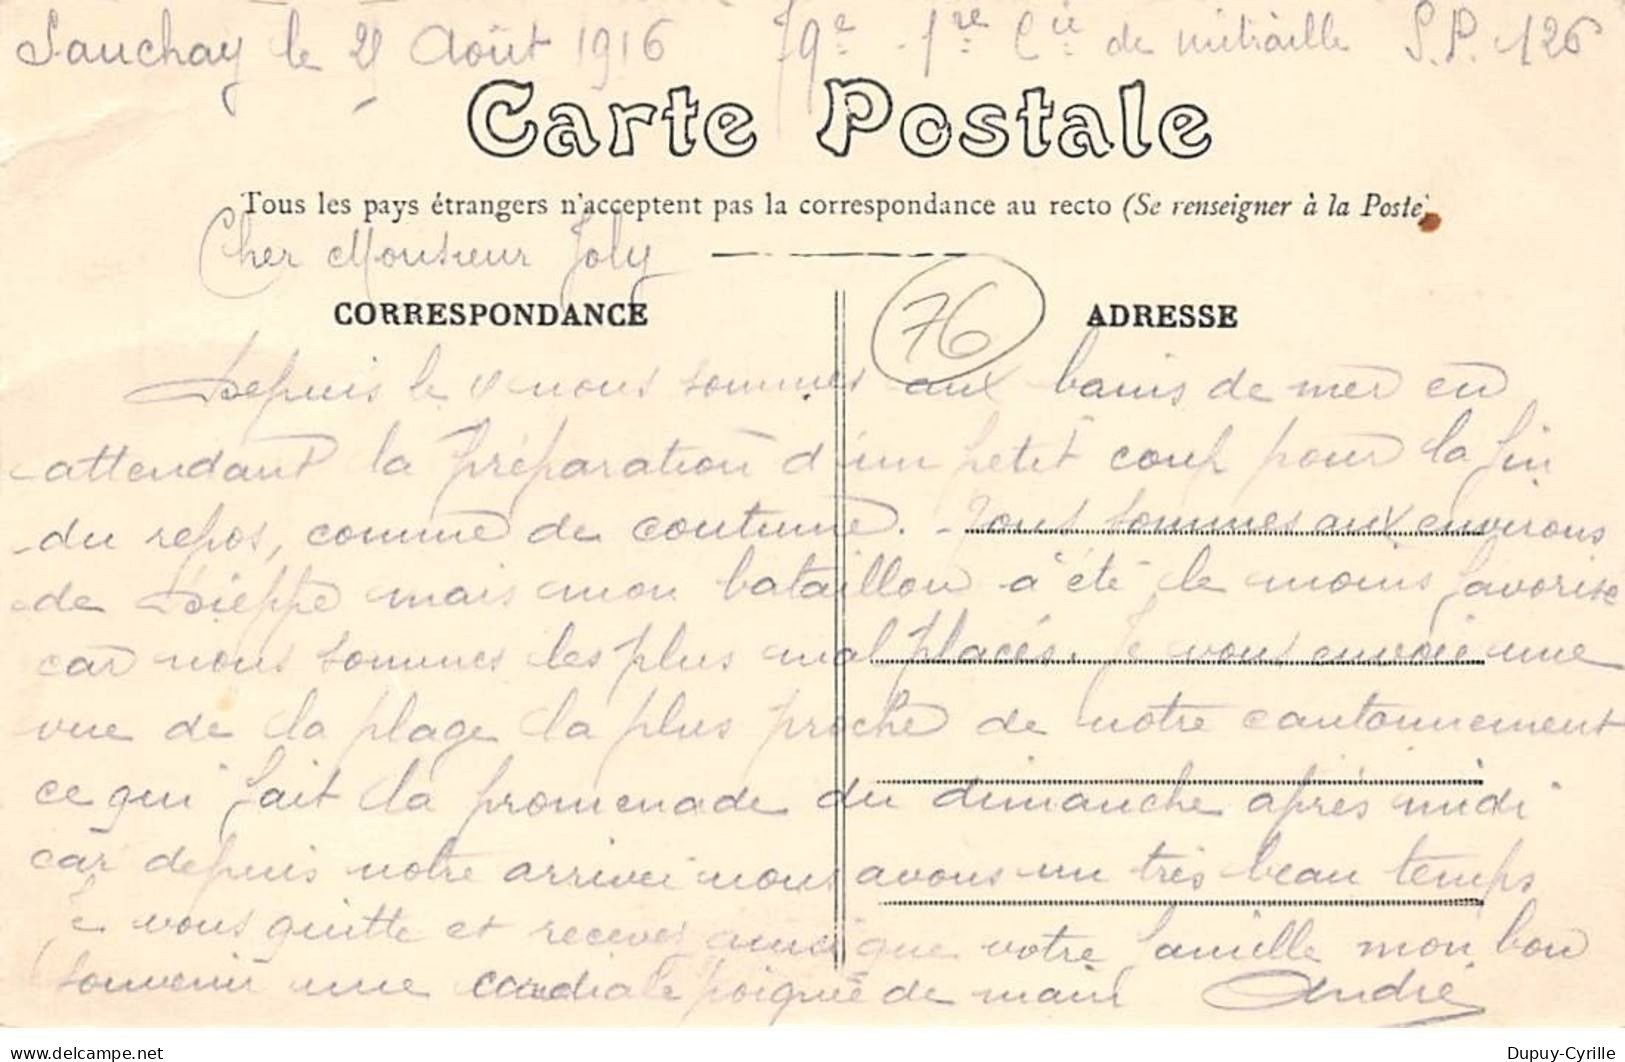 Sauchay le 21 Août 1916 79e 1re Cie de mitraille S.P. 126
Carte Postale
Tous les pays étrangers n'acceptent pas la correspondance au recto (Se renseigner à la Poste)
Cher Monsieur Joly
76
CORRESPONDANCE ADRESSE
Depuis le nous sommes aux bains de mer en
attendant la préparation d'un petit coup pour la fin
du repos, comme de coutume. Nous sommes aux environs
de Dieppe mais mon bataillon a été le moins favorisé
car nous sommes les plus mal placés. Je vous envoie une
vue de la plage la plus proche de notre cantonnement
ce qui fait la promenade du dimanche après midi
car depuis notre arrivée nous avons un très beau temps
Je vous quitte et recevez ainsi que votre famille mon bon
souvenir une cordiale poignée de main André
delcampe.net
Dupuy-Cyrille